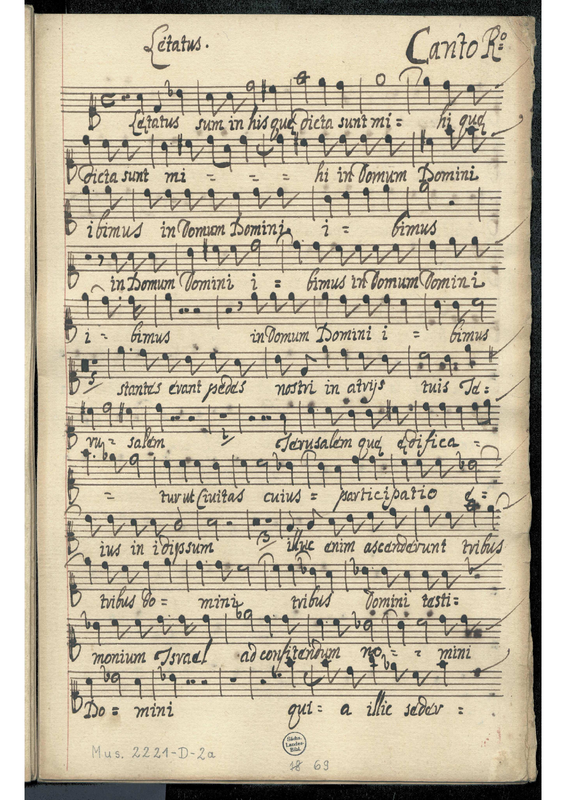 Letatus.
Canto R.o
Letatus sum in his quę dicta sunt mi = hi quę
dicta sunt mi - - = hi in Domum Domini
ibimus in Domum Domini, i = bimus
in Domum Domini i = bimus in Domum Domini
i = bimus in Domum Domini i = bimus
5
stantes erant pedes nostri in atrijs tuis Je =
ru = salem 2 Jerusalem quę ędifica =
= tur ut Civitas cuius = participatio e =
ius in idipsum 3 illuc enim ascenderunt tribus
tribus Do = mini, tribus Domini testi =
monium Israel ad confitendum no = = mini
Do = mini qui = a illic seder =
Sächs. Landes- Bibl.
Mus. 2221-D-2a
18 63